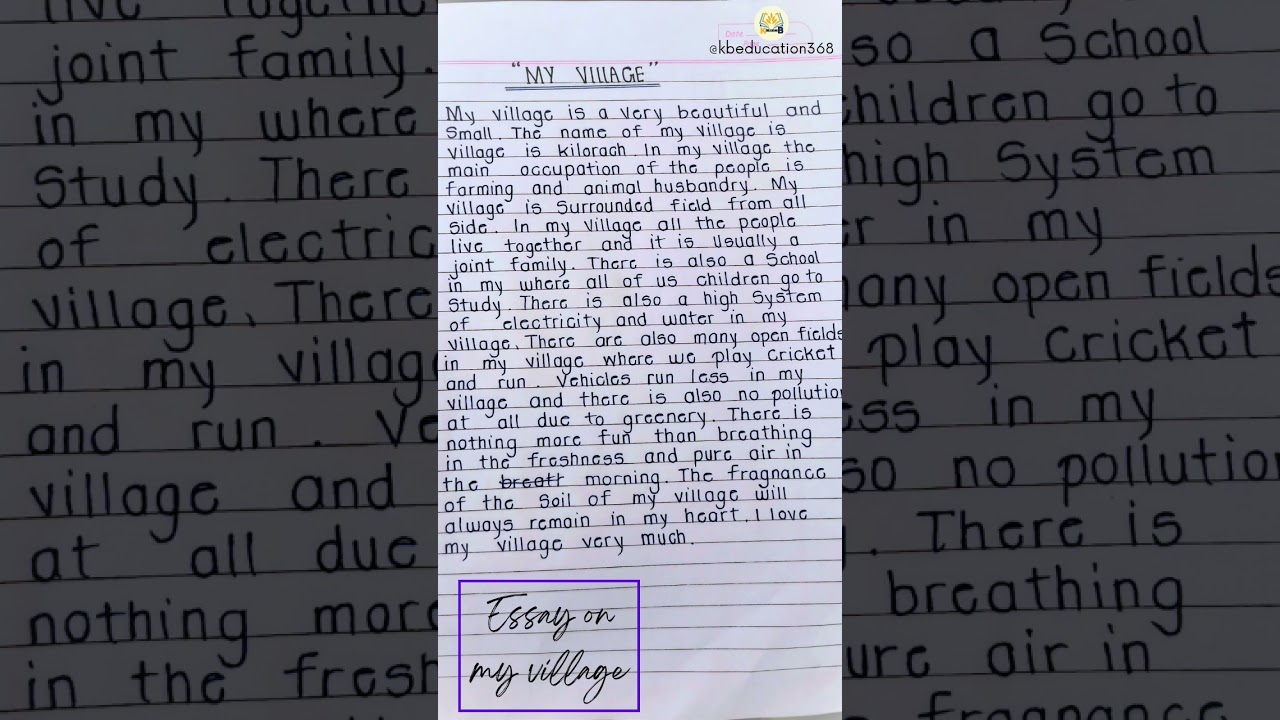 Date
@kbeducation368
"MY VILLAGE"
My village is a very beautiful and
Small. The name of my village is
village is kilorach. In my village the
main occupation of the people is
farming and animal husbandry. My
village is Surrounded field from all
side. In my village all the people
live together and it is usually a
joint family. There is also a School
in my where all of us children go to
Study. There is also a high System
of electricity and water in my
village. There are also many open fields
in my village where we play cricket
and run. Vehicles run less in my
village and there is also no pollution
at all due to greenery. There is
nothing more fun than breathing
in the freshness and pure air in
the morning. The fragnance
of the Soil of my village will
always remain in my heart. I love
my village very much.
Essay on
my village